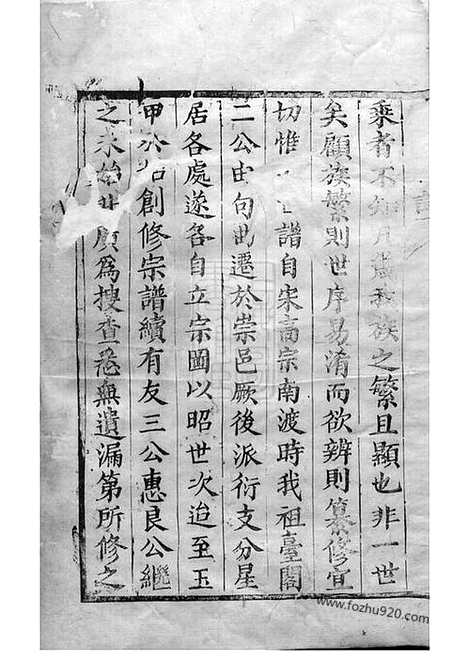 乘者不知凡幾我族之繁且顯也非一世
矣顧族繁則世序易淆而欲辨則纂修宜
切惟譜自宋高宗南渡時我祖臺閣
二公由句曲遷於崇邑厥後派衍支分星
居各處遂各自立宗圖以昭世次迨至玉
甲公始創修宗譜續有友三公惠良公繼
之未始非廣為搜查悉無遺漏第所修之
www.fozhu920.com